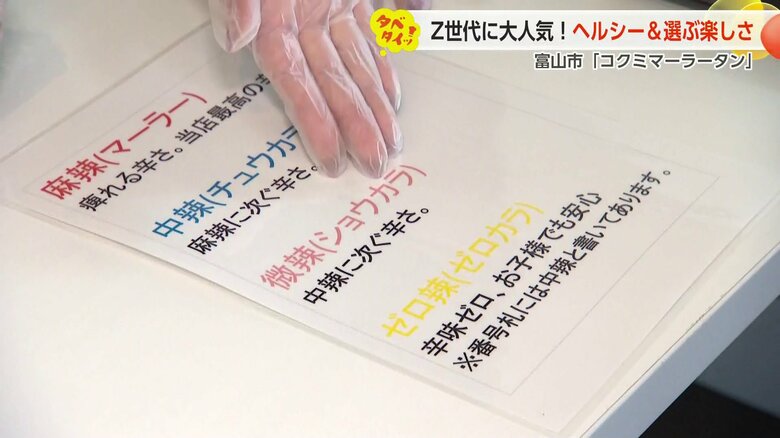 タベタイッ!
Z世代に大人気!ヘルシー&選ぶ楽しさ
富山市「コクミマーラータン」
麻辣(マーラー)
痺れる辛さ。当店最高の
中辣(チュウカラ
麻辣に次ぐ辛さ。
微辣(ショウカラ)
中辣に次ぐ辛さ。
ゼロ辣(ゼロカラ)
辛味ゼロ、お子様でも安心
※番号札には中辣と書いてあります。